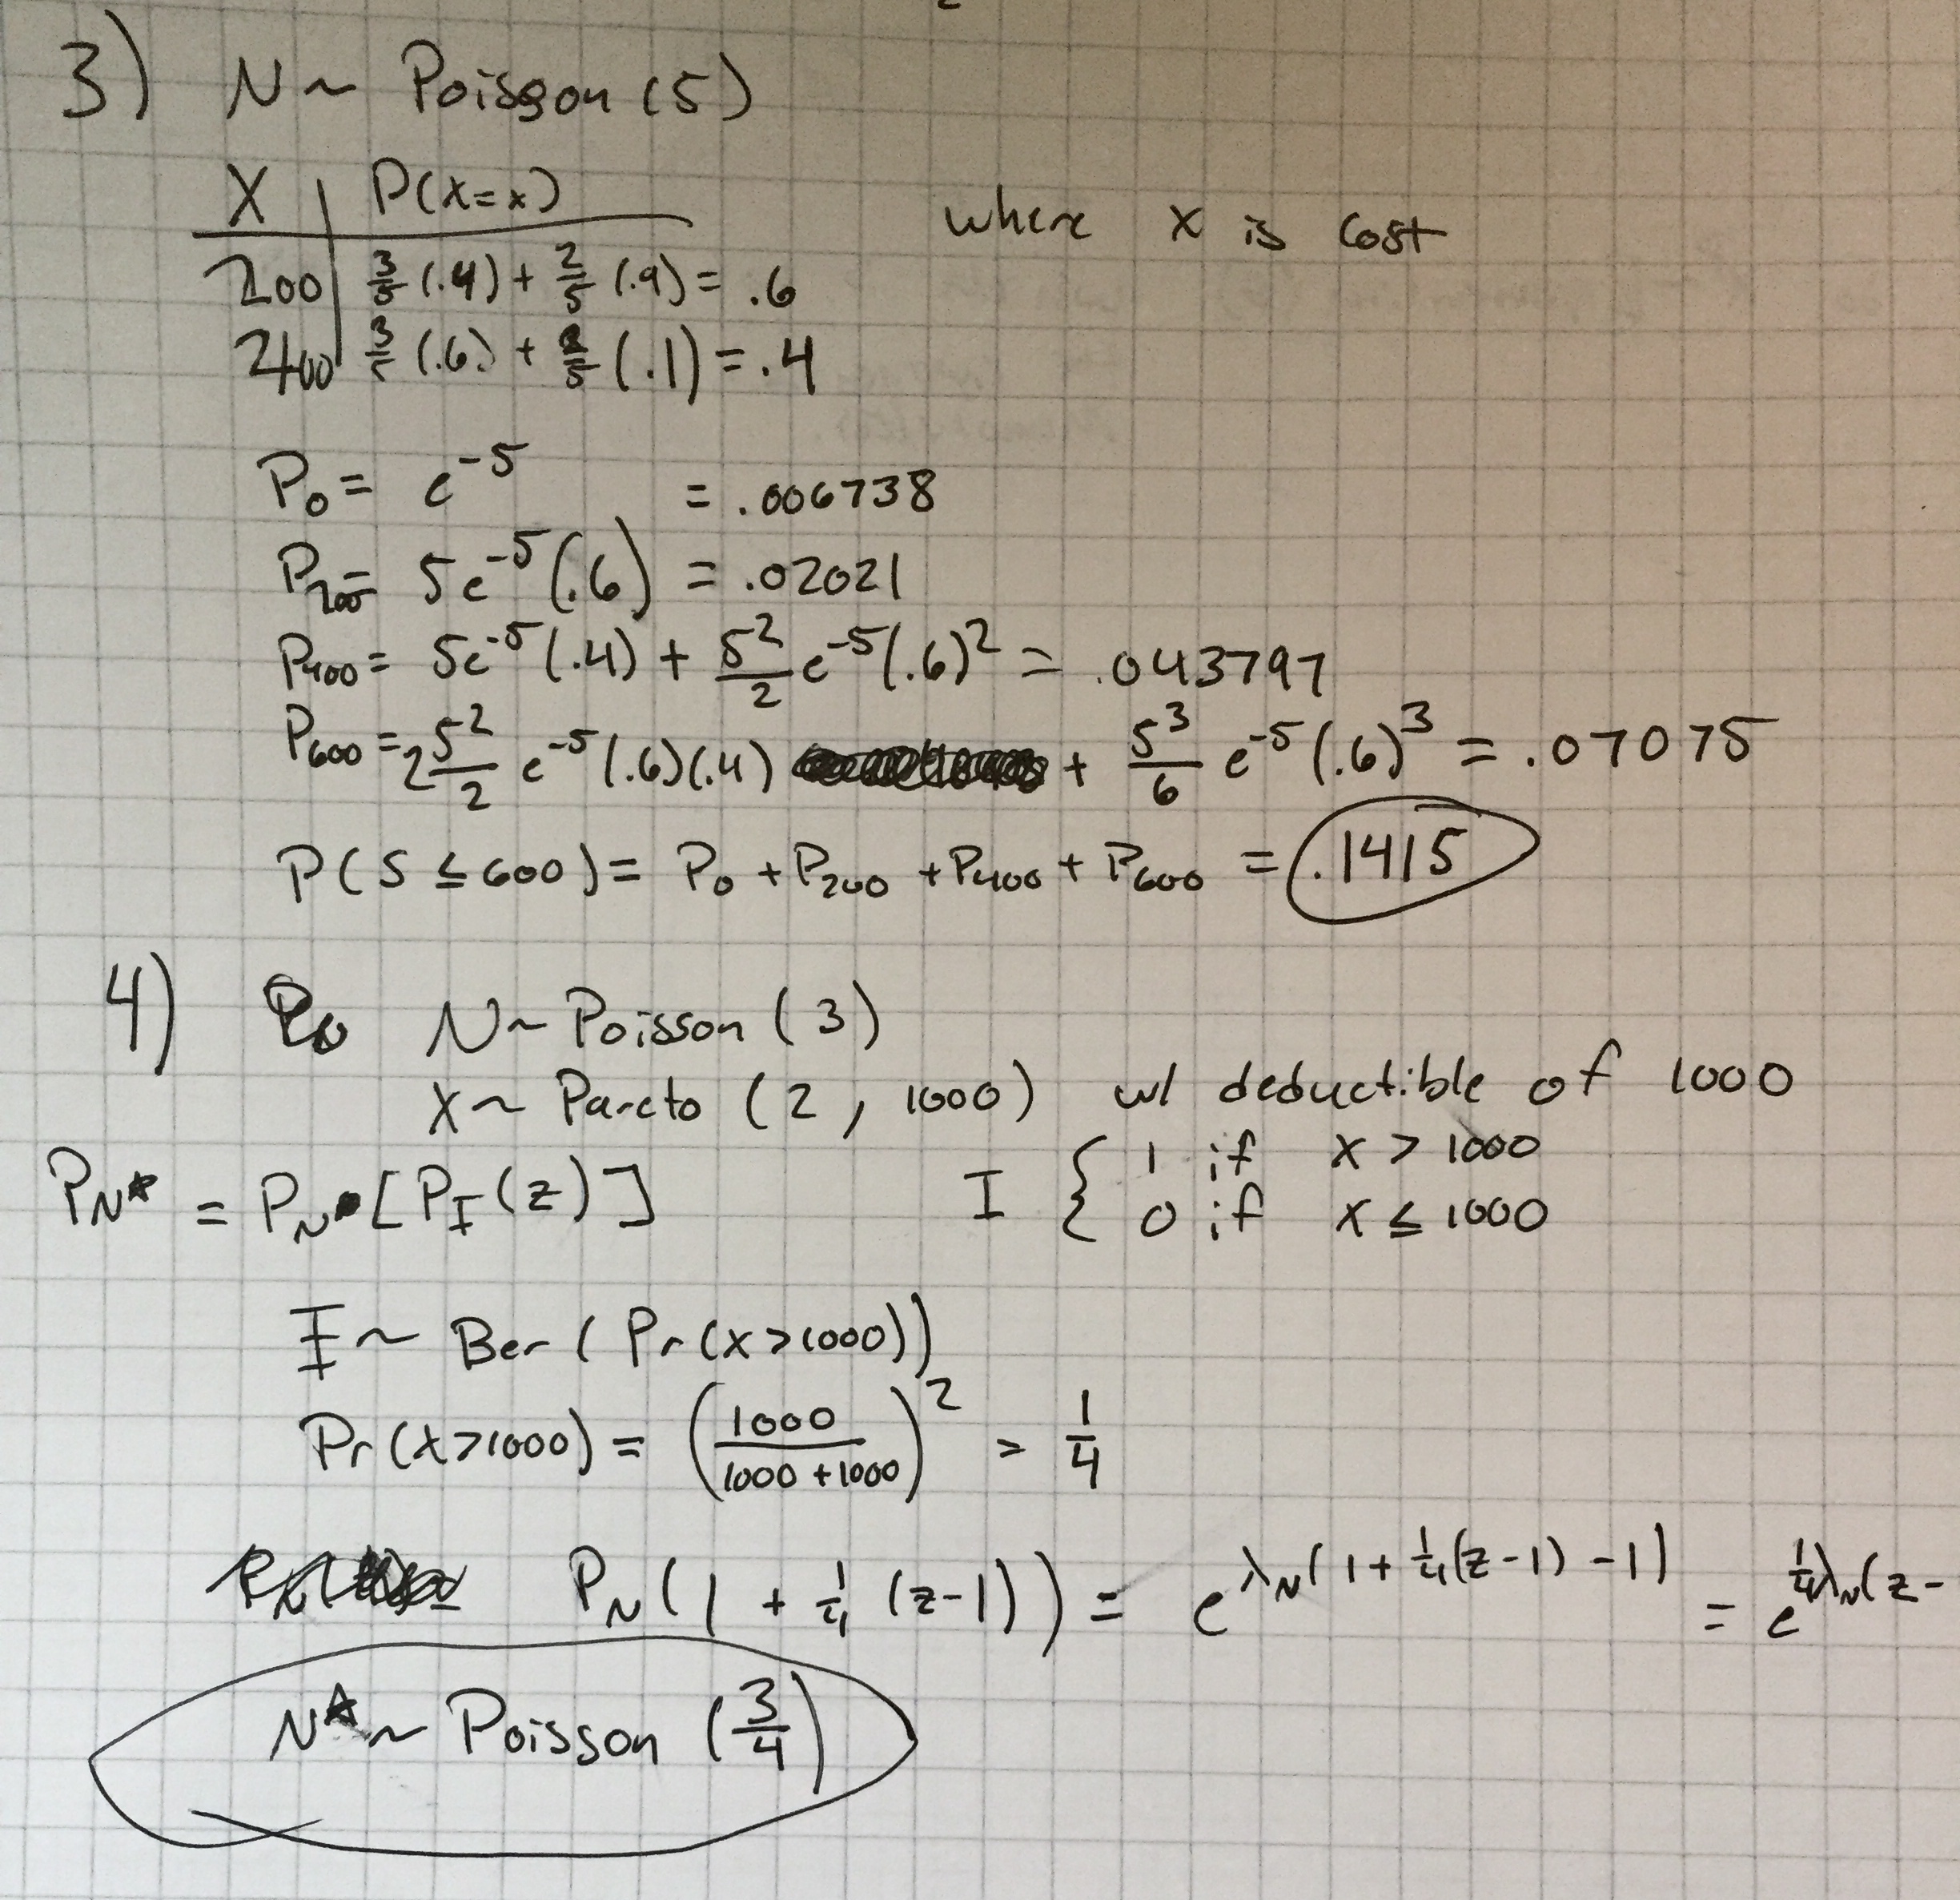 3) N ~ Poisson (5)
X | P(X=x)
where x is cost
200 | 3/5 (.4) + 2/5 (.9) = .6
400 | 3/5 (.6) + 2/5 (.1) = .4
P₀ = e⁻⁵ = .006738
P₂₀₀ = 5e⁻⁵(.6) = .02021
P₄₀₀ = 5e⁻⁵(.4) + 5²/2 e⁻⁵(.6)² = .043797
P₆₀₀ = 2 5²/2 e⁻⁵(.6)(.4) + 5³/6 e⁻⁵(.6)³ = .07075
P(S ≤ 600) = P₀ + P₂₀₀ + P₄₀₀ + P₆₀₀ = .1415
4) N ~ Poisson (3)
X ~ Pareto (2, 1000) w/ deductible of 1000
P_N* = P_N [P_I(z)]
I { 1 if x > 1000
0 if x ≤ 1000
I ~ Ber (Pr(x>1000))
Pr(x>1000) = (1000/(1000+1000))² = 1/4
P_N(1 + 1/4 (z-1)) = e^λ_N(1 + 1/4(z-1) -1) = e^1/4λ_N(z-
N* ~ Poisson (3/4)